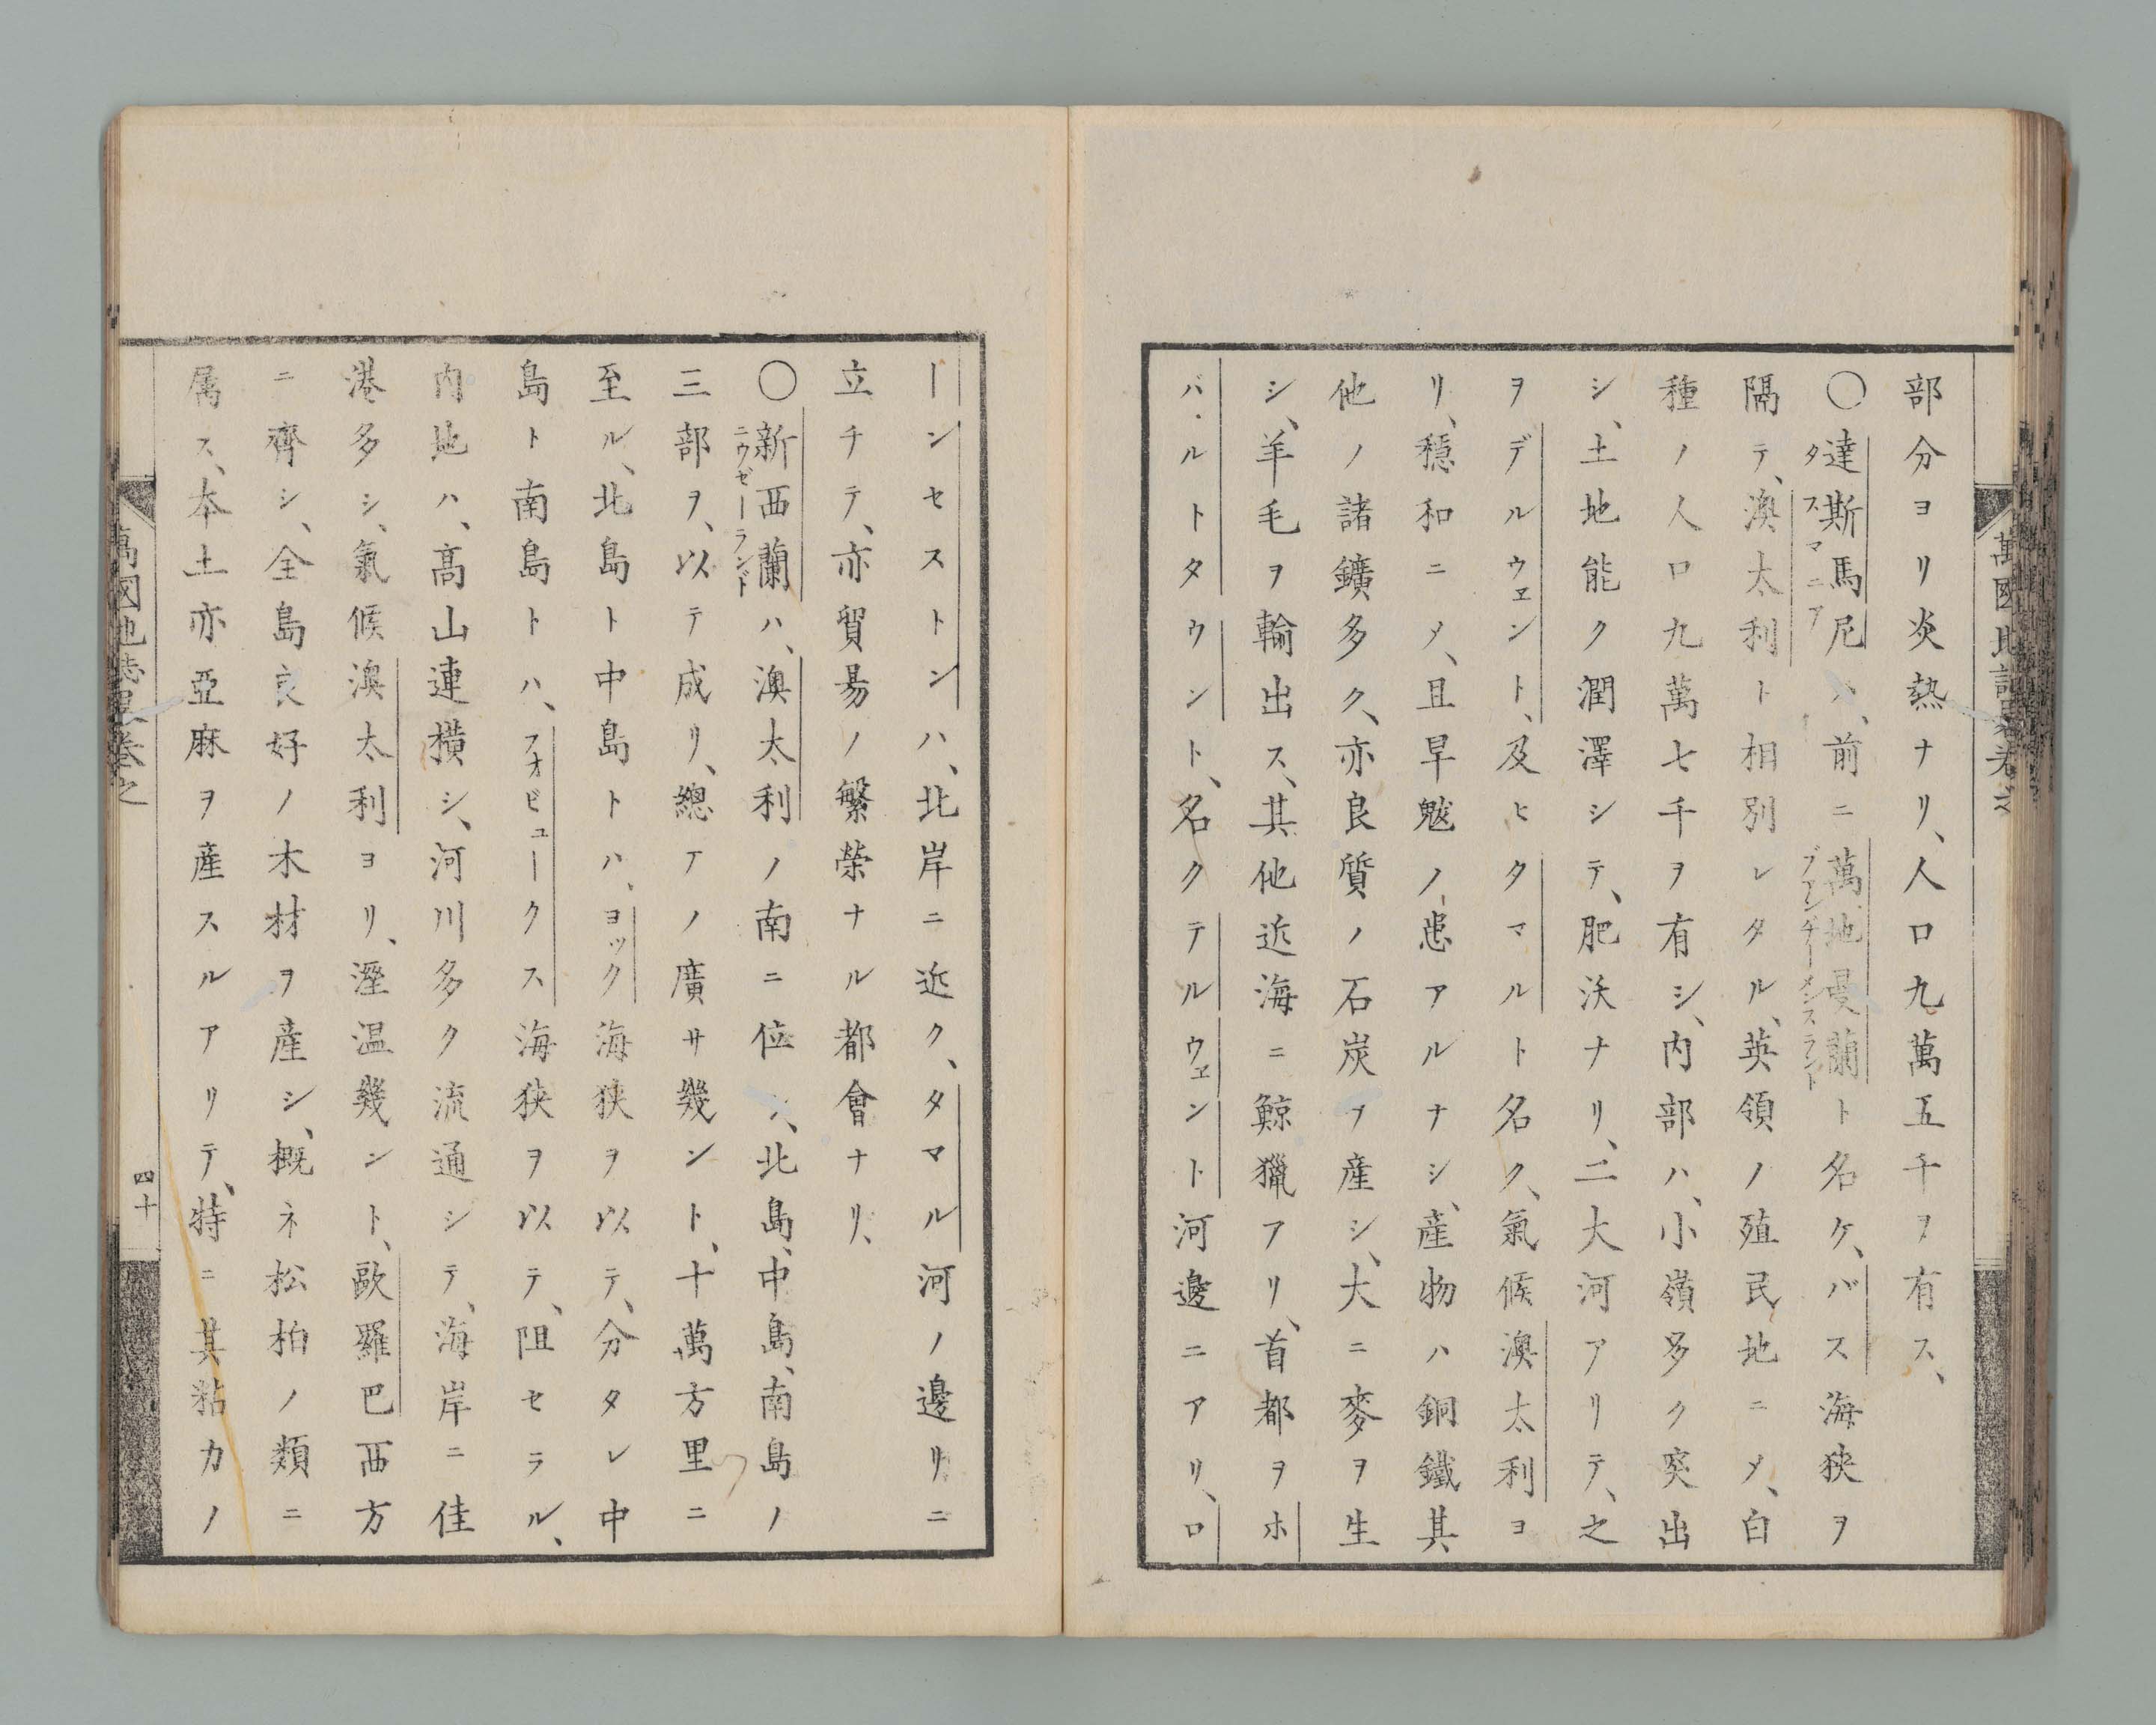 部分ヨリ炎熱ナリ、人口九萬五千ヲ有ス、
〇達斯馬尼ハ、前ニ萬地曼蘭ト名ケ、バス海狹ヲ
タスマニア
ブアンヂーメンスラント
隔テ、澳太利ト相別レタル、英領ノ殖民地ニメ、白
種ノ人口九萬七千ヲ有シ、内部ハ、小嶺多ク突出
シ、土地能ク潤澤シテ、肥沃ナリ、二大河アリテ、之
ヲデルウヱント、及ヒタマルト名ク、氣候澳太利ヨ
リ、穩和ニメ、且旱魃ノ患アルナシ、産物ハ銅鐵其
他ノ諸鑛多ク、亦良質ノ石炭ヲ産シ、大ニ麥ヲ生
シ、羊毛ヲ輸出ス、其他近海ニ鯨獵アリ、首都ヲホ
バルトタウント、名クテルウヱント河邊ニアリ、ロ
ーンセストンハ、北岸ニ近ク、タマル河ノ邊リニ
立チテ、亦貿易ノ繁榮ナル都會ナリ、
〇新西蘭ハ、澳太利ノ南ニ位シ、北島、中島、南島ノ
ニウゼーランド
三部ヲ、以テ成リ、總テノ廣サ幾ント、十萬方里ニ
至ル、北島ト中島トハ、ヨック海狹ヲ以テ、分タレ中
島ト南島トハ、フオビュークス海狹ヲ以テ、阻セラル、
内地ハ、高山連横シ、河川多ク流通シテ、海岸ニ佳
港多シ、氣候澳太利ヨリ、溼温幾ント、歐羅巴西方
ニ齊シ、全島良好ノ木材ヲ産シ、概ネ松柏ノ類ニ
属ス、本土亦亞麻ヲ産スルアリテ、特ニ其粘カノ
萬國地誌畧卷之
四十